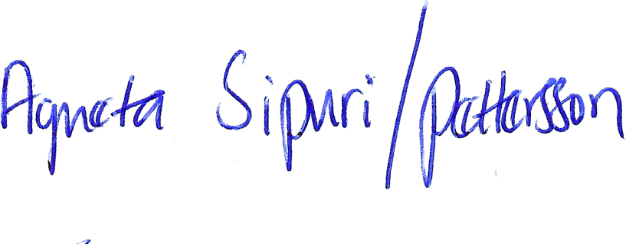 Agneta Sipuri/Pettersson